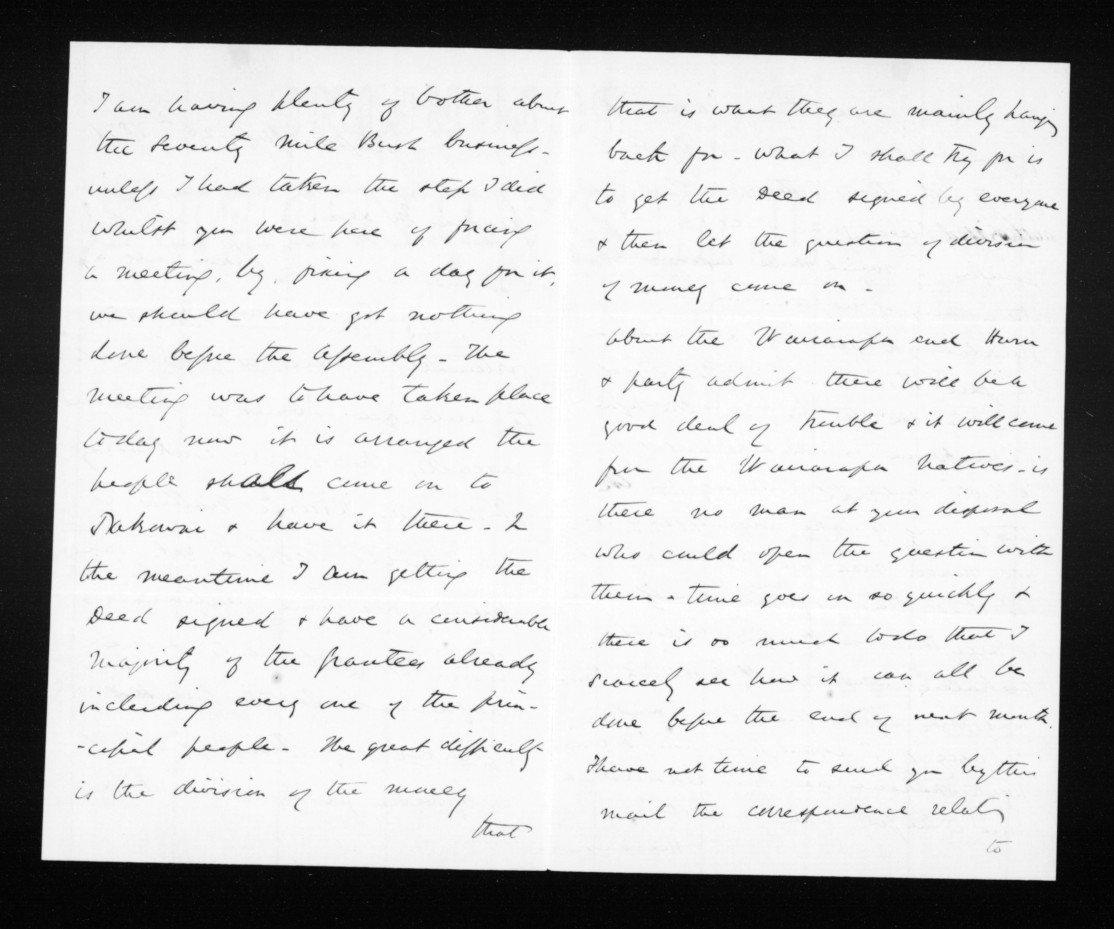 I am having plenty of bother about
the Seventy Mile Bush business -
unless I had taken the step I did
whilst you were here of forcing
a meeting, by fixing a day for it,
we should have got nothing
done before the Assembly - The
meeting was to have taken place
today now it is arranged the
people shall come on to
Pakowai & have it there - In
the meantime I am getting the
Deed signed & have a considerable
majority of the grantees already
including every one of the prin-
-cipal people - The great difficulty
is the division of the money
that
that is what they are mainly hanging
back for - What I shall try for is
to get the Deed signed by everyone
& then let the question of division
of money come on -
About the Wairarapa end
& party admit there will be a
good deal of trouble & it will come
from the Wairarapa Natives - is
there no man at your disposal
who could open the question with
them - time goes on so quickly &
there is so much to do that I
scarcely see how it can all be
done before the end of next month.
I have not time to send you by this
mail the correspondence relating
to